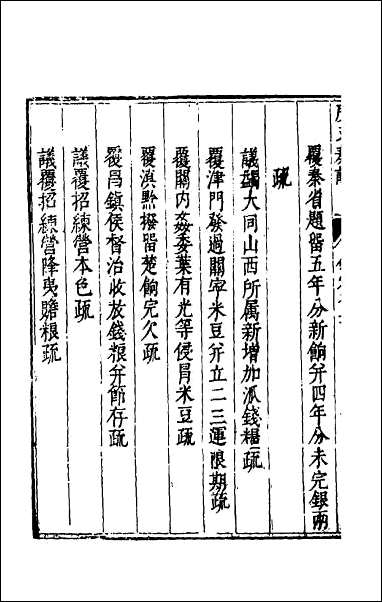 覆秦省題留五年分新餉并四年分未完銀兩
疏
議蠲大同山西所属新增加派錢糧疏
覆津門發過關寧米豆并立二三運限期疏
覆關内姦委葉有光等侵冒米豆疏
覆滇黔撥留楚餉完欠疏
覆昌鎮侯督治收放錢粮并節存疏
議覆招練營本色疏
議覆招練營降夷贍根疏